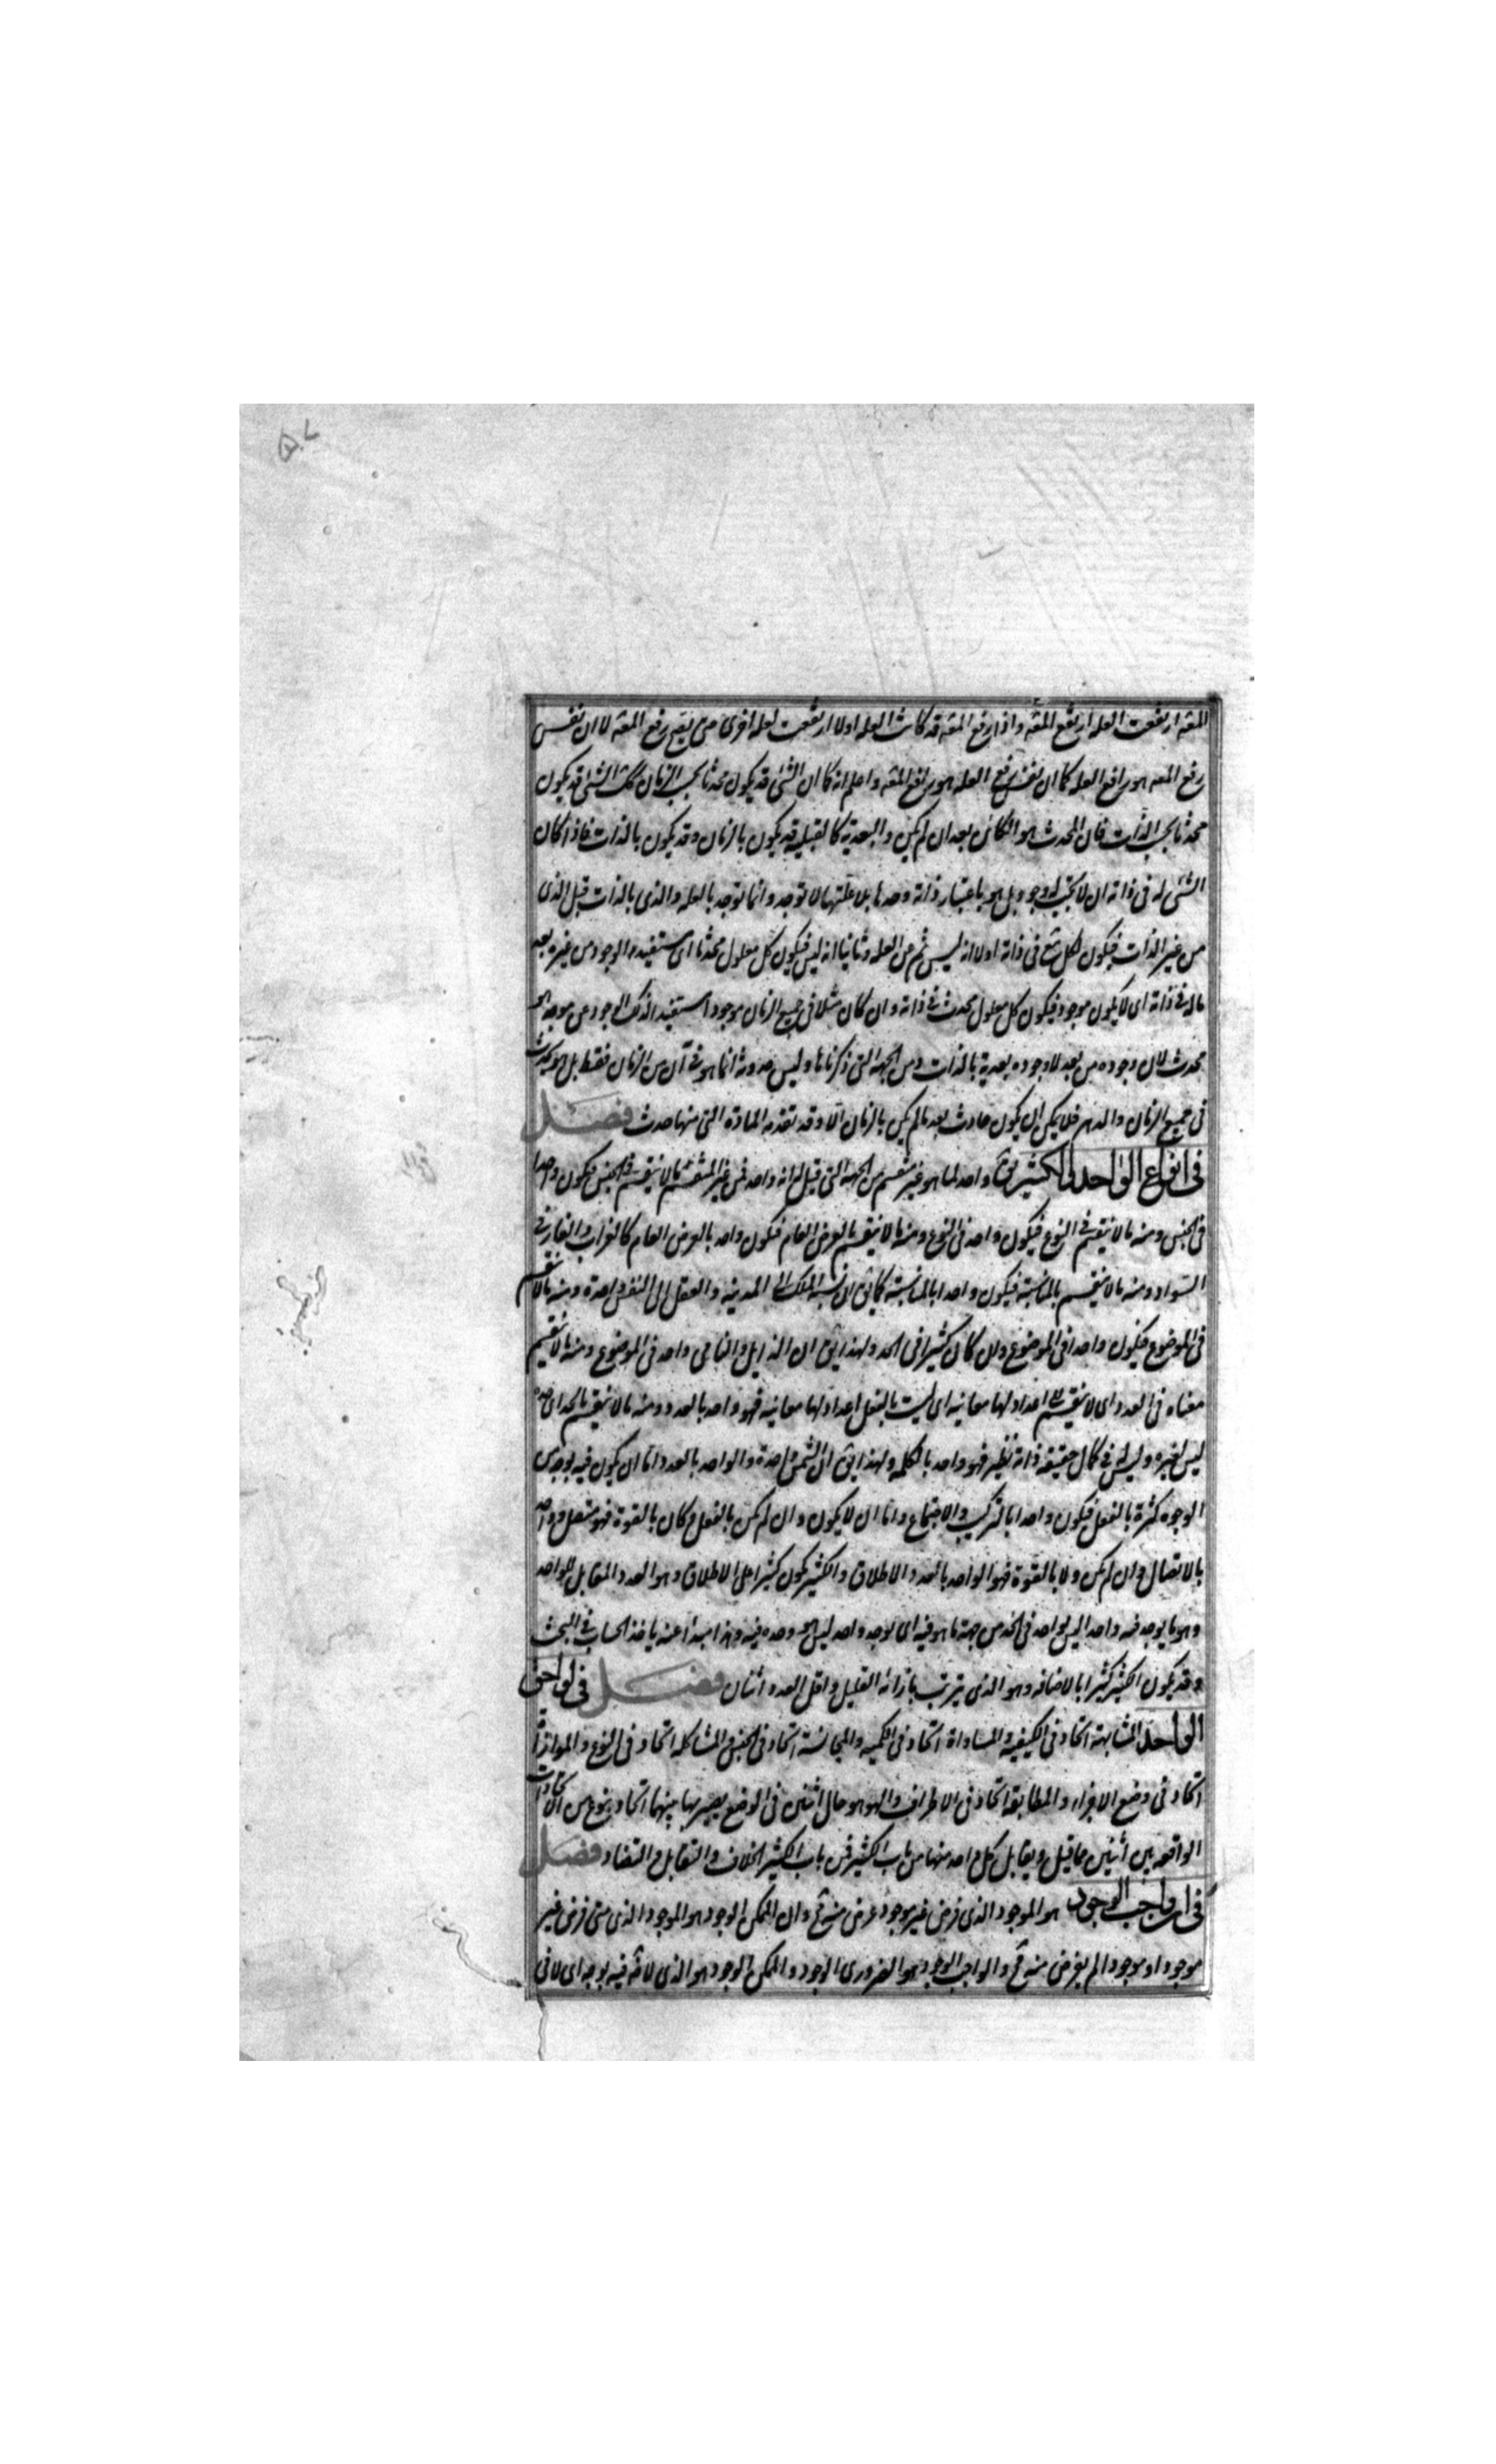 المعه ارتفعت العله ارتفع المعه واذا رفع المعه قد كانت العله اولا ارتفعت لعله اخرى حتى يقع رفع المعه لا ان نفس
رفع المعه هو رافع العله كما ان نفس رفع العله هو رافع المعه واعلم انه كما ان الشئ قد يكون محدثا بحسب الزمان كك الشئ قد يكون
محدثا بحسب الذات فان المحدث هو الكائن بعد ان لم يكن والبعدية كالقبلية قد يكون بالزمان وقد يكون بالذات فاذا كان
الشئ له فى ذاته ان لا يجب له وجود بل هو باعتبار ذاته وحدها بلا علتها لا توجد وانما توجد بالعله والذى بالذات قبل الذى
من غير الذات فيكون لكل شئ فى ذاته اولا انه ليس ثم عن العله وثانيا انه ليس فيكون كل معلول محدثا اى مستفيد الوجود من غيره بعد
ماله فى ذاته اى لا يكون موجودا فيكون كل معلول محدث فى ذاته وان كان مثلا فى جميع الزمان موجودا مستفيدا لذلك الوجود عن موجد
محدث لان وجوده من بعد لا وجوده بعدية بالذات ومن الجهه التى ذكرناها وليس حدوثه انما هو فى آن من الزمان فقط بل هو محدث
فى جميع الزمان والدهر فلا يمكن ان يكون حادث بعد ما لم يكن بالزمان الا وقد تقدمه المادة التى منها حدث فصل
فى انواع الواحد والكثير يق واحد لما هو غير منقسم من الجهه التى قيل له انه واحد فمن غير المنقسم ما لا ينقسم فى الجنس فيكون واحدا
فى الجنس ومنه ما لا ينقسم فى النوع فيكون واحد فى النوع ومنه ما لا ينقسم بالعرض العام فيكون واحد بالعرض العام كالغراب والقار فى
السواد ومنه ما لا ينقسم بالمناسبة فيكون واحدا بالمناسبة كما يق ان نسبة الملك الى المدينه والعقل الى النفس واحدة ومنه ما لا ينقسم
فى الموضوع فيكون واحدا فى الموضوع وان كان كثيرا فى الحد ولهذا يق ان الذابل والنامى واحد فى الموضوع ومنه ما لا ينقسم
معناه فى العدد اى لا ينقسم الى اعداد لها معانيه اى ليست بالفعل اعداد لها معانيه فهو واحد بالعدد ومنه ما لا ينقسم بالحد اى حده
ليس لغيره وليس فى كمال حقيقة ذاته نظير فهو واحد بالكلمه ولهذا يق ان الشمس واحدة والواحد بالعدد اما ان يكون فيه بوجه من
الوجوه كثرة بالفعل فيكون واحدا بالتركيب والاجتماع واما ان لا يكون وان لم يكن بالفعل وكان بالقوة فهو متصل وواحد
بالاتصال وان لم يكن ولا بالقوة فهو الواحد بالعدد والاطلاق والكثير يكون كثيرا على الاطلاق وهو العدد المقابل للواحد
وهو ما يوجد فيه واحد اليس بواحد فى الحد من جهة ما هو فيه اى يوجد واحد ليس هو وحده فيه وهذا مبدأ عنه ياخذ الحساب فى البحث
وقد يكون الكثير كثيرا بالاضافه وهو الذى يترتب بازائه القليل واقل العدد اثنان فصل فى لواحق
الواحد المشابهة اتحاد فى الكيفية والمساواة اتحاد فى الكميه والمجانسة اتحاد فى الجنس والمشاكله اتحاد فى النوع والموازاة
اتحاد فى وضع الاجزاء والمطابقة اتحاد فى الاطراف والهوهو حال اثنين فى الوضع يصير بها بينهما اتحاد بنوع من الاتحادات
الواقعه بين اثنين مما قيل ويقابل كل واحد منها من باب الكثير فمن باب الكثير الخلاف والتقابل والتضاد فصل
فى ان واجب الوجود هو الموجود الذى فرض غير موجود عرض منه مح وان الممكن الوجود هو الموجود الذى متى فرض غير
موجود او موجودا لم يعرض منه مح والواجب الوجود هو الضرورى الوجود والممكن الوجود هو الذى لا ضرورة فيه بوجه اى لا فى